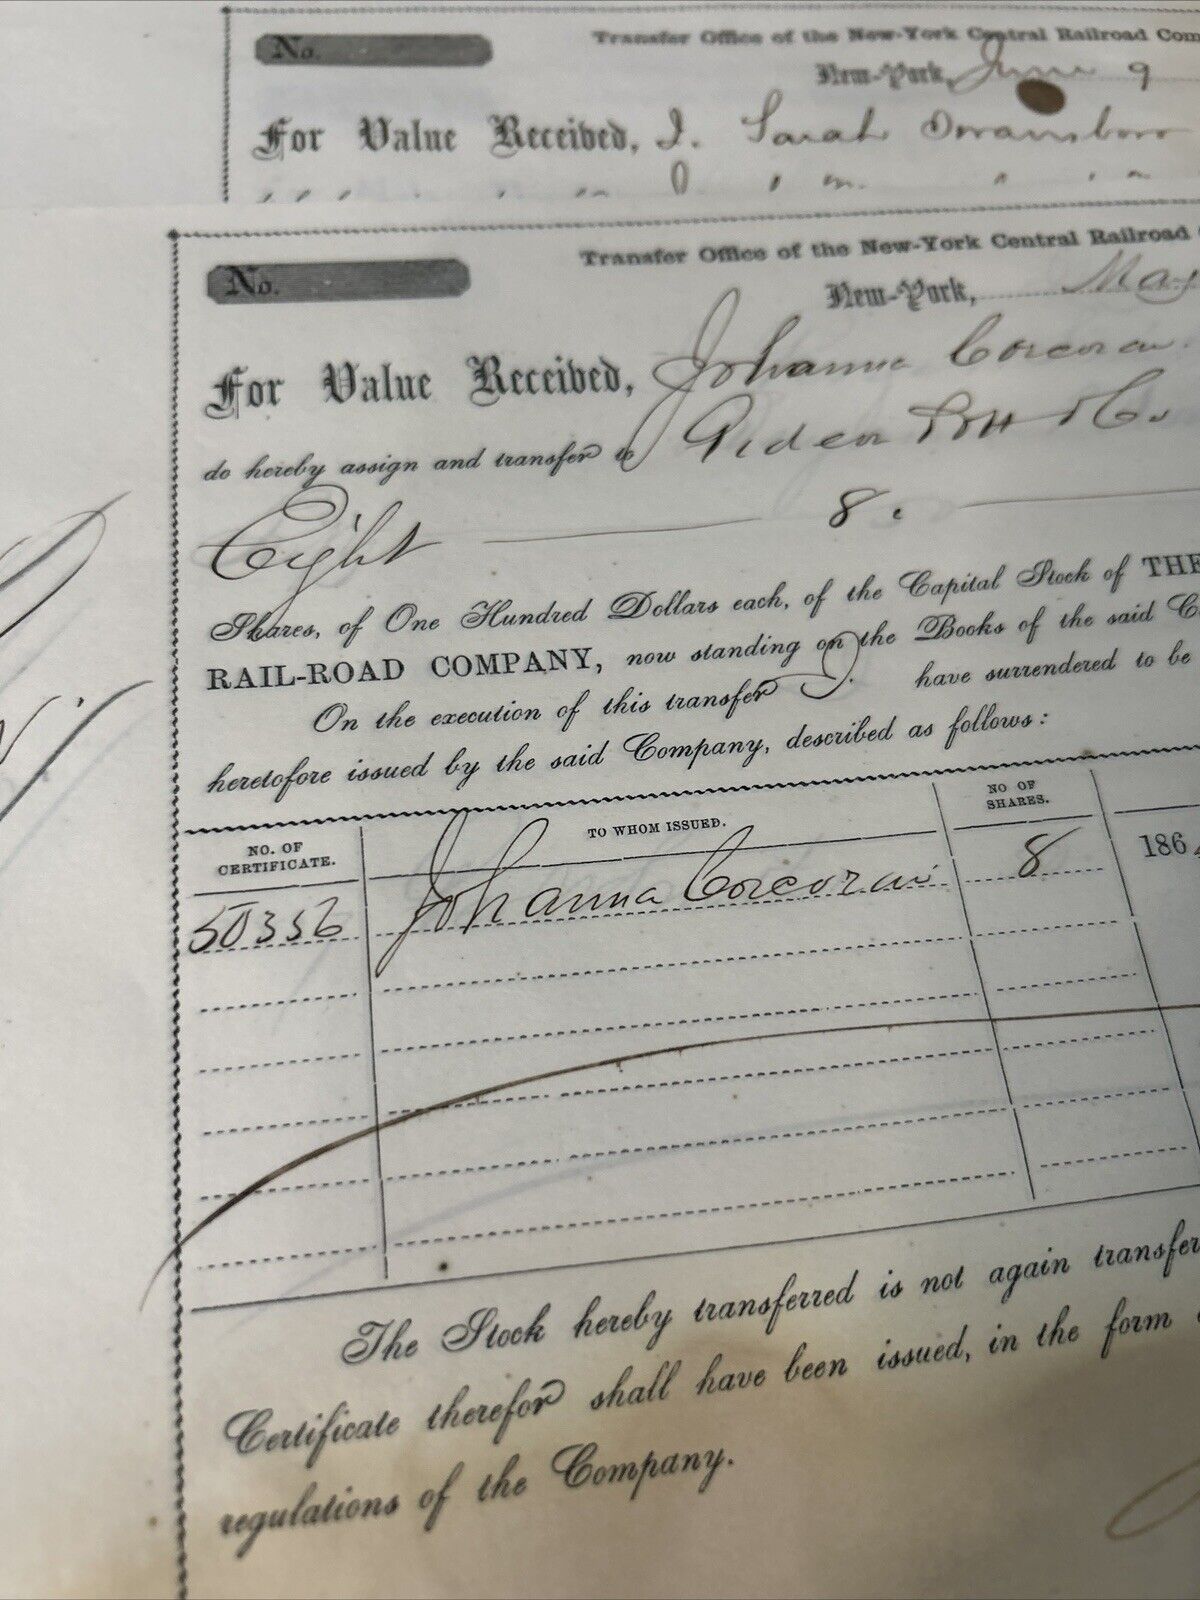 No.
Transfer Office of the New-York Central Railroad Com
New-York, June 9
For Value Received, I. Sarah
No.
Transfer Office of the New-York Central Railroad
New-York, May
For Value Received, Johanna Corcoran
do hereby assign and transfer to Gideon & Co
Eight 8.
Shares, of One Hundred Dollars each, of the Capital Stock of THE
RAIL-ROAD COMPANY, now standing on the Books of the said C
On the execution of this transfer I. have surrendered to be
heretofore issued by the said Company, described as follows:
NO. OF CERTIFICATE. TO WHOM ISSUED. NO OF SHARES.
50356 Johanna Corcoran 8 186
The Stock hereby transferred is not again transfer
Certificate therefor shall have been issued, in the form
regulations of the Company.